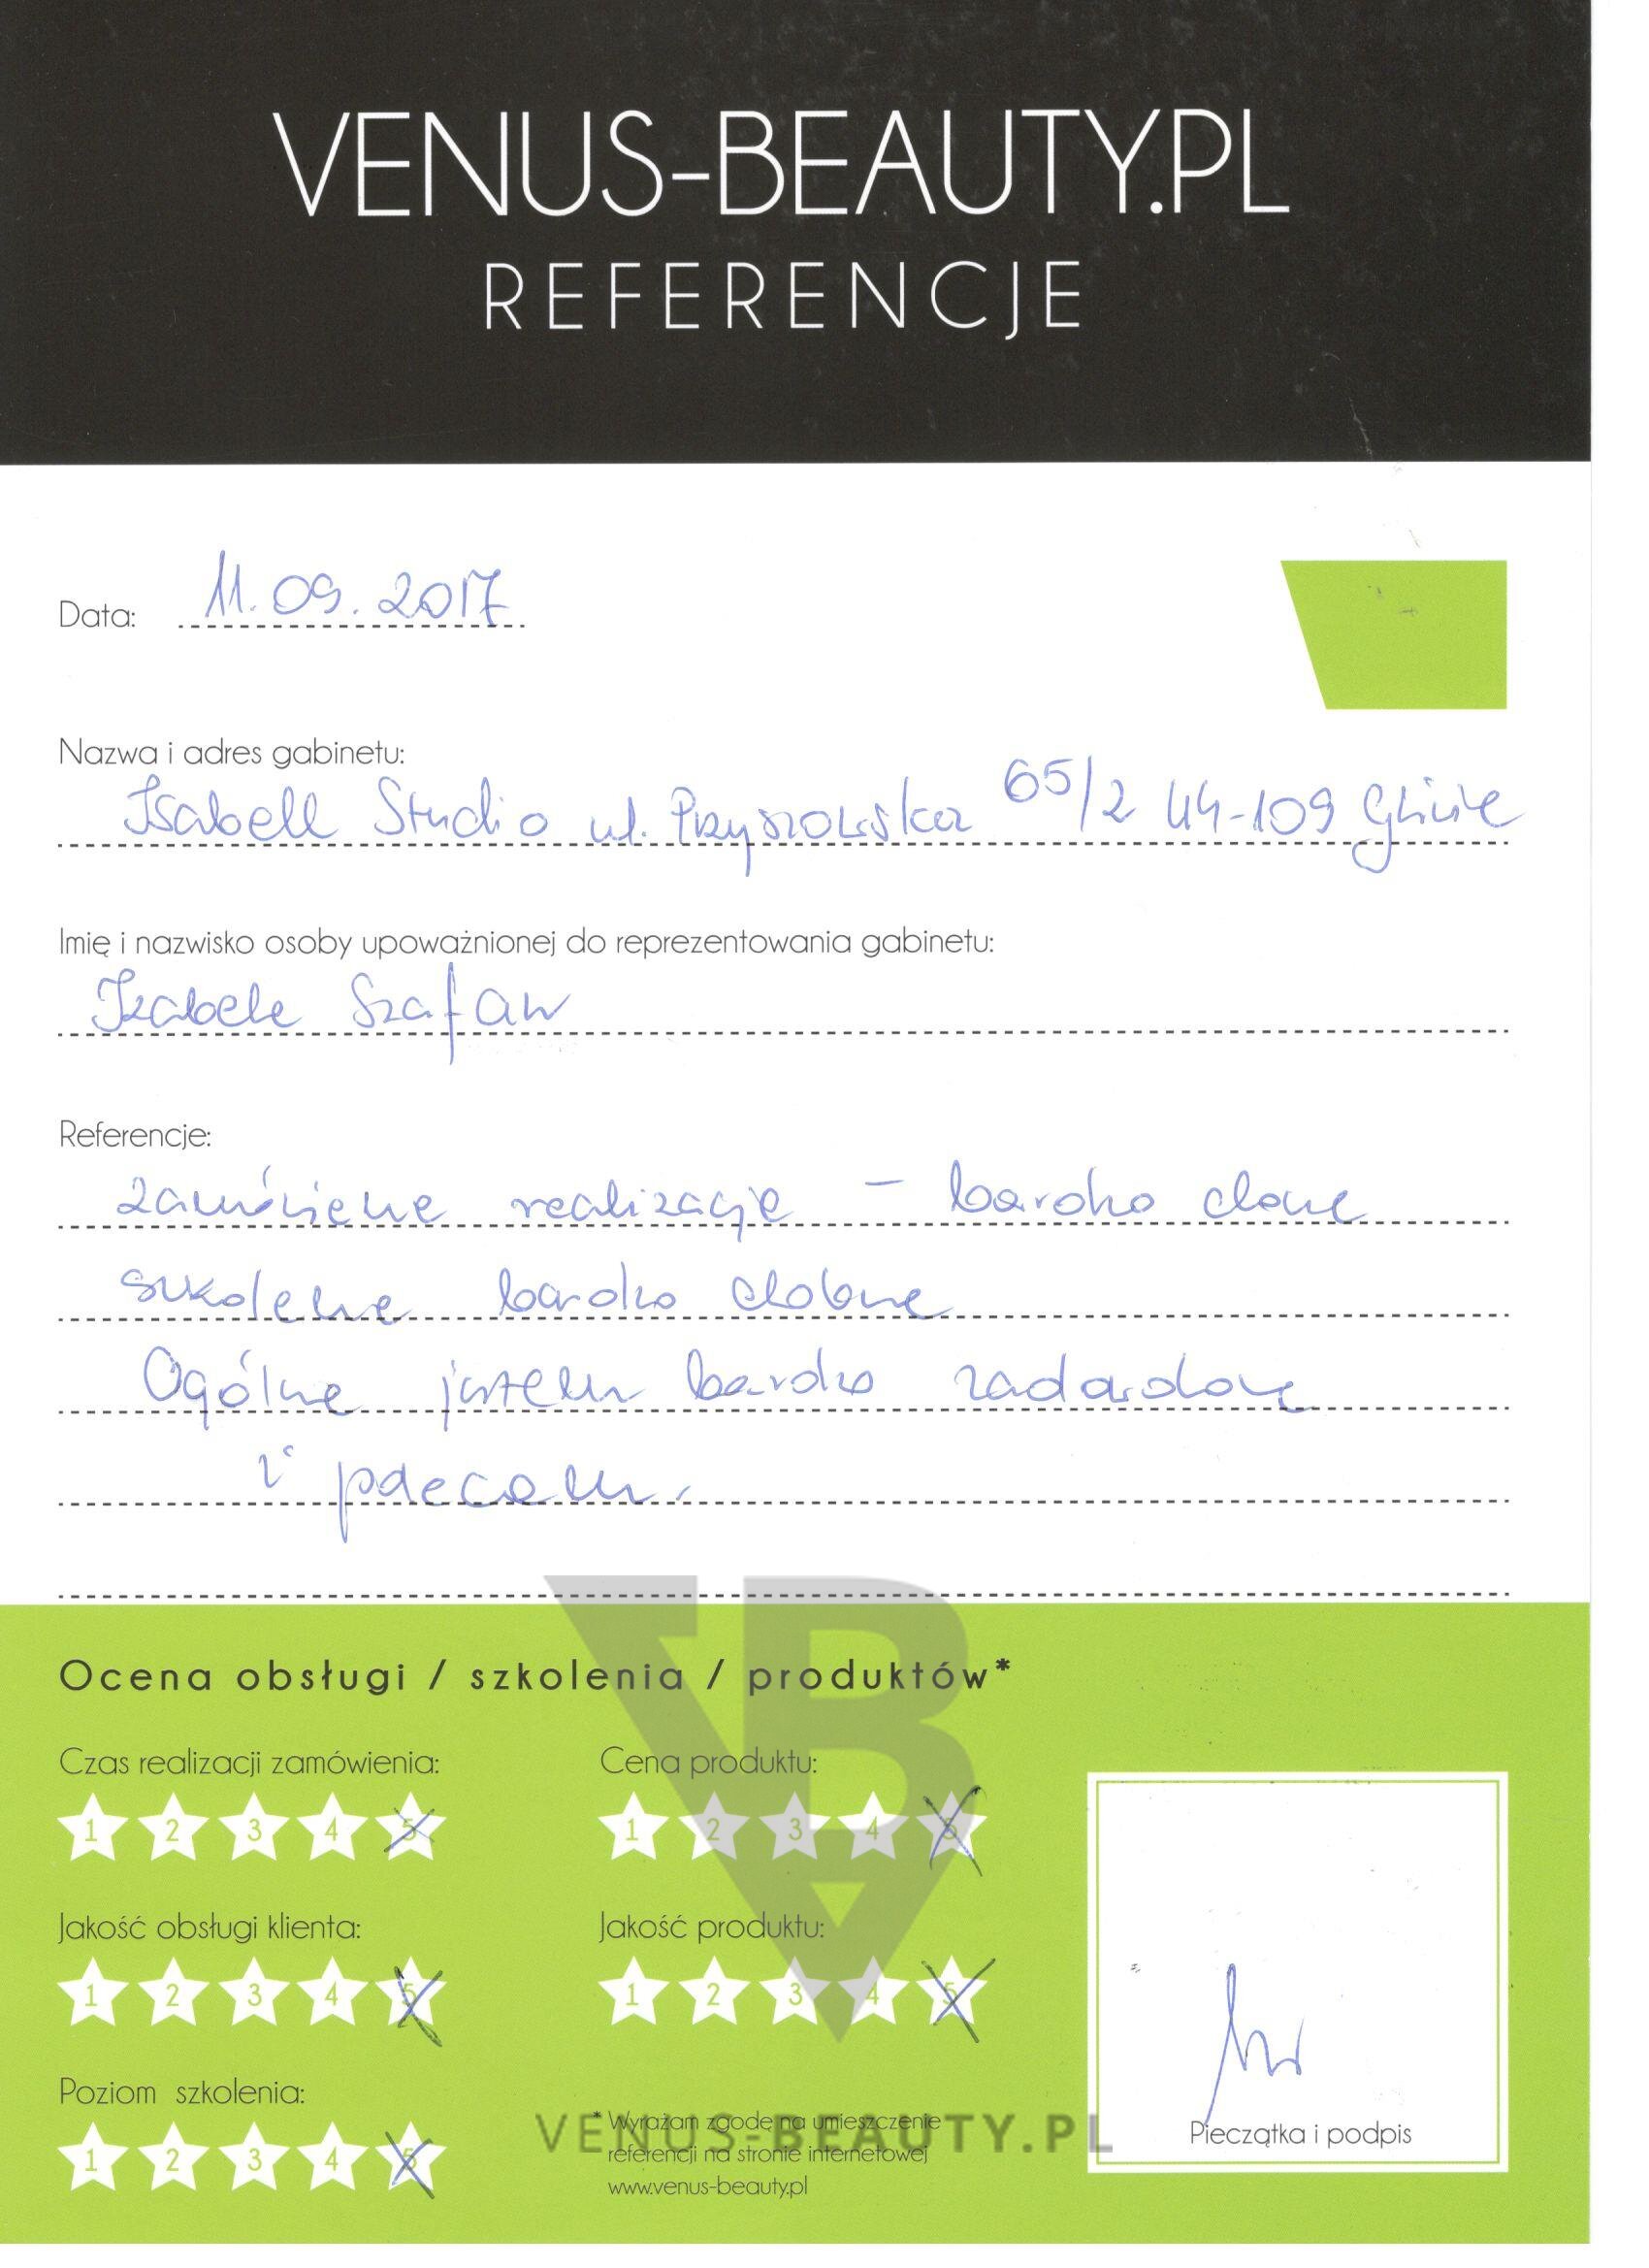 VENUS-BEAUTY.PL
REFERENCJE
Data: 11.09.2017
Nazwa i adres gabinetu:
Isabell Studio ul. Przyszowska 65/2 44-109 Gliwice
Imię i nazwisko osoby upoważnionej do reprezentowania gabinetu:
Izabela Szafaw
Referencje:
zamówienie realizacje - bardzo dobre
szkolenie bardzo dobre
Ogólnie jestem bardzo zadowolona
i polecam.
Ocena obsługi / szkolenia / produktów*
Czas realizacji zamówienia: Cena produktu:
1 2 3 4 5 1 2 3 4 5
Jakość obsługi klienta: Jakość produktu:
1 2 3 4 5 1 2 3 4 5
Poziom szkolenia:
1 2 3 4 5
* Wyrażam zgodę na umieszczenie
referencji na stronie internetowej
www.venus-beauty.pl
VENUS-BEAUTY.PL
Pieczątka i podpis